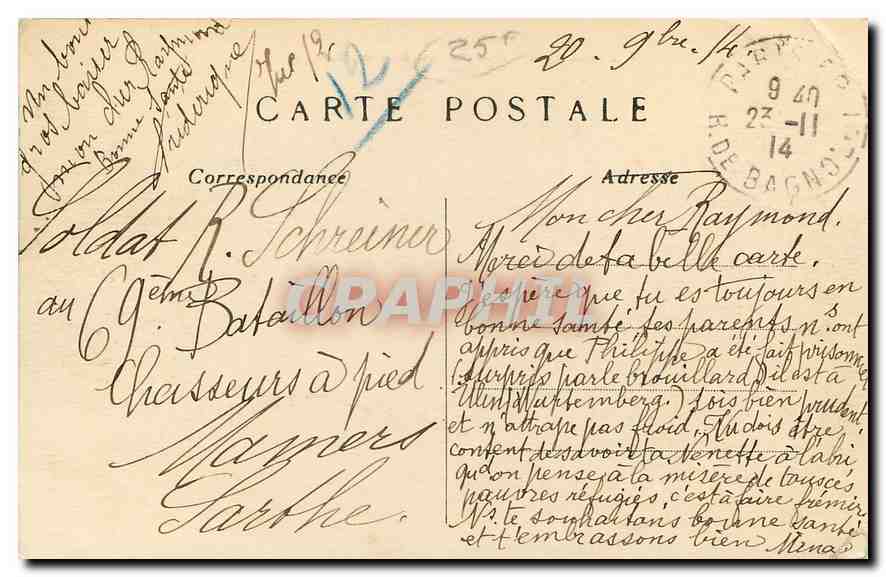 Un bon
gros baiser
mon cher Raymond
Bonne Santé
Frédérique
12
25F
20. 9bre. 14.
CARTE POSTALE
9 40
23 -11
14
R. DE BAGNO
Correspondance
Adresse
Soldat R. Schreiner
au 69ème Bataillon
Chasseurs à pied
Mamers
Sarthe.
Mon cher Raymond.
Merci de ta belle carte.
J'espère que tu es toujours en
bonne santé. tes parents ns ont
appris que Philippe a été fait prisonnier
(surpris par le brouillard) il est à
Wurtemberg.) sois bien prudent
et n'attrape pas froid. Tu dois être
content de savoir ta Nenette à l'abri
qd on pense à la misère de tous ces
pauvres réfugiés, c'est à faire frémir.
Ns. te souhaitons bonne santé
et t'embrassons bien Mina
CPAPHIL